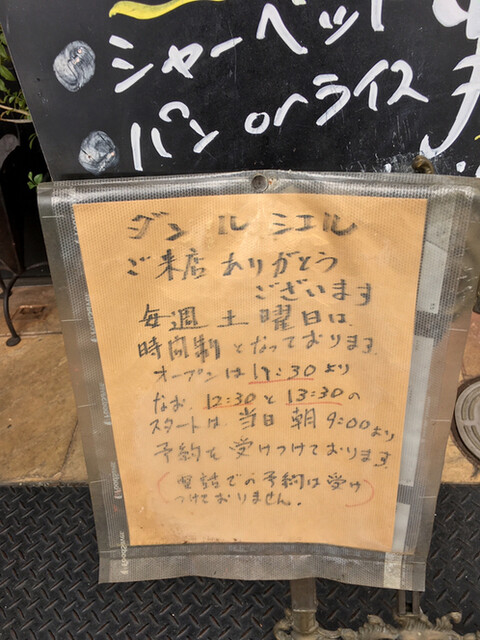 シャーベット
パン orライス
ダン ル シエル
ご来店 ありがとう
ございます
毎週 土 曜日は、
時間制 となっております。
オープンは 11:30 より
なお、12:30 と 13:30 の
スタートは、当日 朝 9:00 より
予約を 受けつけております。
(電話での予約は受け
つけておりません。)